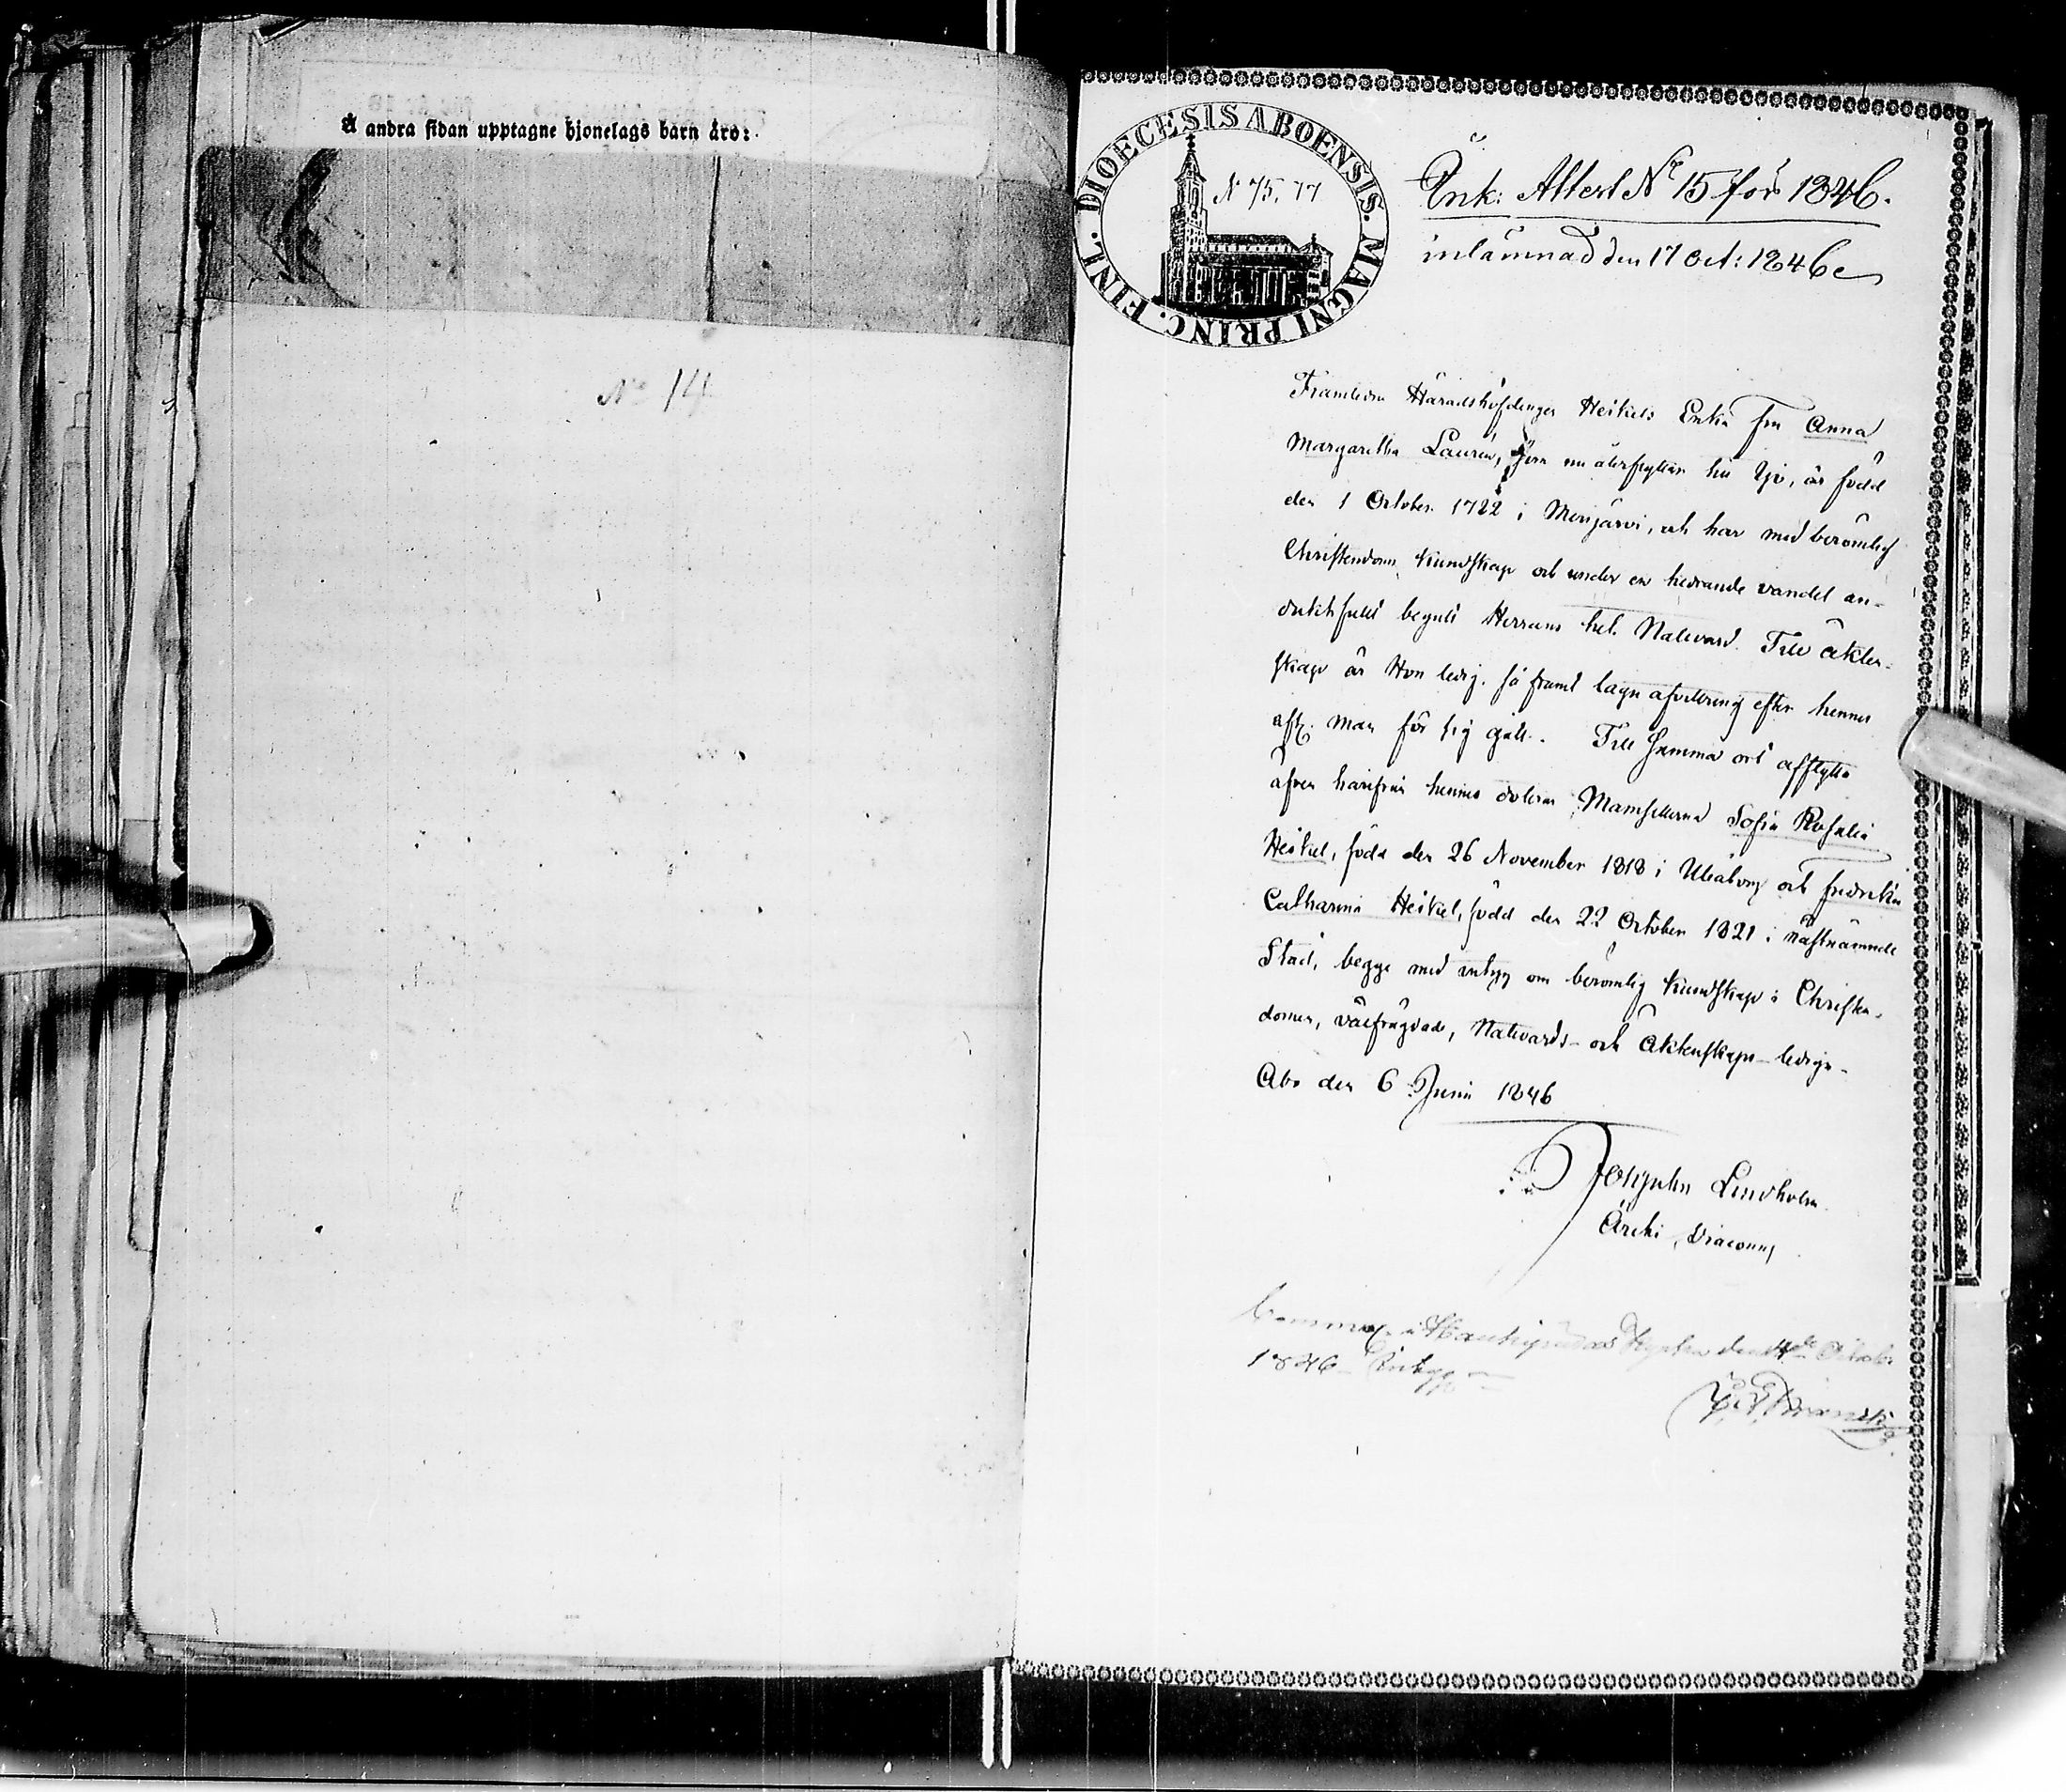 å andra sidan upptagne hjonelags barn äro:
No 14
DIOECESIS ABOENSIS. MAGNI PRINC. FINL.
N 75, 77
Enk: Attest No 15 för 1846.
inlämnad den 17 Oct: 1846
Framlidne Häradshöfdingen Heikels Enka fru Anna
Margaretha Laurén, som nu återflyttar till Ijo, är född
den 1 October 1782 i Merijärvi, och har med berömlig
Christendoms kundskap och under en hedrande vandel an-
däcktsfullt begått Herrans hel. Nattvard. Till äkten-
skap är Hon ledig, så framt laga afvittring efter hennes
afl. man för sig gått. Till samma ort afflytta
äfven härifrån hennes döttrar Mamsellerna Sofia Rosalia
Heikel, född den 26 November 1818 i Uleåborg och Fredrika
Catharina Heikel, född den 22 October 1821 i nästnämnde
Stad, begge med intyg om berömlig kundskap i Christen-
domen, välfrägdade, Nattvards- och Äktenskaps-lediga.
Åbo den 6 Junii 1846
Lindholm
Archi Diaconus
den 4de October
1846 Intyg